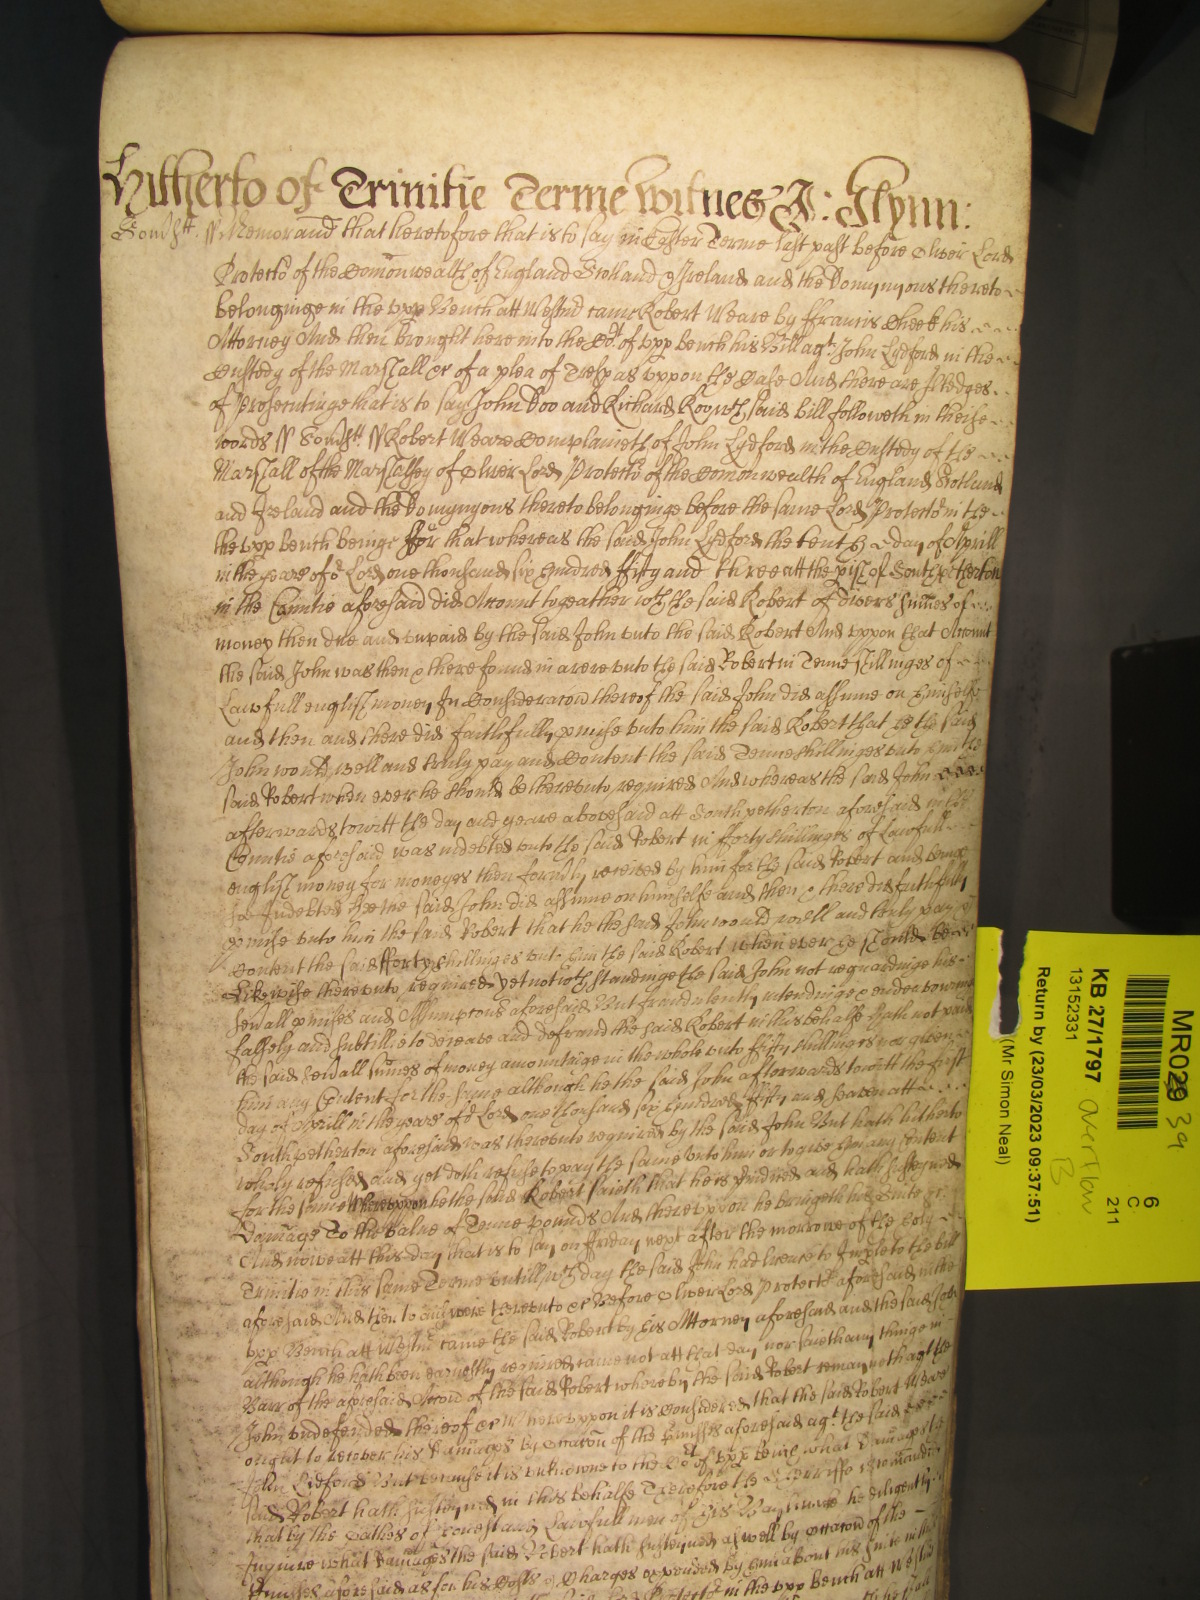 Hitherto of Trinitie Terme witnes J: Glynn:
Somst. ss Memorand that heretofore that is to say in Easter Terme last past before Oliver Lord
Protector of the Comonwealth of England Scotland & Ireland and the Dominyons thereto
belonginge in the upp Bench att Westmr came Robert Weare by ffrancis Cheek his
Attorney And then brought here into the Cot. of upp bench his Bill agt. John Lydford in the
Custody of the Marshall &c of a plea of Trespas uppon the Case And there are Pledges
of Prosecutinge that is to say John Doo and Richard Roo wch said bill followeth in theise
words ss Somst. ss Robert Weare Complaineth of John Lydford in the Custody of the
Marshall of the Marshalsey of Oliver Lord Protector of the Comonwealth of England Scotland
and Ireland and the Dominyons thereto belonginge before the same Lord Protector in the
the upp bench beinge For that whereas the said John Lydford the tenth day of Aprill
in the yeare of or Lord one thousand six hundred ffifty and three att the pish of South petherton
in the Countie aforesaid did Accompt togeather wth the said Robert of divers sumes of
money then due and unpaid by the said John unto the said Robert And uppon that Accompt
the said John was then & there found in arere unto the said Robert in Tenne shillinges of
Lawfull english money In Consideracon thereof the said John did assume on himselfe
and then and there did faithfully pmise unto him the said Robert that he the said
John would well and truly pay and Content the said Tenne shillinges unto him the
said Robert when ever he should be thereunto required And whereas the said John
afterwards to witt the day and yeare abovesaid att South petherton aforesaid in the
Countie aforesaid was indebted unto the said Robert in fforty shillinges of Lawfull
english money for moneyes then formerly received by him for the said Robert and beinge
soe Indebted hee the said John did assume on himselfe and then & there did faithfully
pmise unto him the said Robert that he the said John would well and truly pay &
Content the said fforty shillinges unto him the said Robert when ever he should bee
Likewise thereunto required yet notwthstandinge the said John not reguardinge his
sevall pmises and Assumptons aforesaid But fraudulently intendinge & endeavouringe
falsely and subtillie to deceave and defraud the said Robert in this behalfe hath not paid
the said sevall sumes of money amountinge in the whole unto ffifty shillinges nor given
him any Content for the same although he the said John afterwards to witt the first
day of Aprill in the yeare of or Lord one thousand six hundred ffifty and seaven att
South petherton aforesaid was thereunto required by the said John But hath hitherto
wholy refused and yet doth refuse to pay the same unto him or to give him any content
for the same Whereuppon he the said Robert saieth that he is Hindred and hath susteyned
Damage To the value of Tenne pounds And thereuppon he bringeth his Suite &c.
And nowe att this day that is to say on ffriday next after the morrowe of the holy
Trinitie in this same Terme untill wch day the said John had licence to Imple to the bill
aforesaid And then to answere thereunto &c Before Oliver Lord Protector aforesaid in the
upp Bench att Westmr came the said Robert by his Attorney aforesaid and the said John
although he hath been earnestly required came not att that day nor saieth any thinge in
Barr of the aforesaid Accon of the said Robert whereby the said Robert remayneth agt the
John undefended thereof &c Whereuppon it is considered that the said Robert Weare
ought to recover his damages by occacon of the pmisses aforesaid agt. the said
John Lidford But because it is unknowne to the Cot of upp bench what Damages the
said Robert hath susteyned in this behalfe Therefore the Sherriffe is Comanded
that by the Oathes of honest and Lawfull men of his Baylywicke he diligently
Inquire what Damages the said Robert hath susteyned aswell by occacon of the
Pmisses aforesaid as for his Costs & Charges expended by him about his suite in this
in the upp bench att Westmr
MR029 39
6
C
211
KB 27/1797 overflow
B
13152331
Return by (23/03/2023 09:37:51)
(Mr Simon Neal)